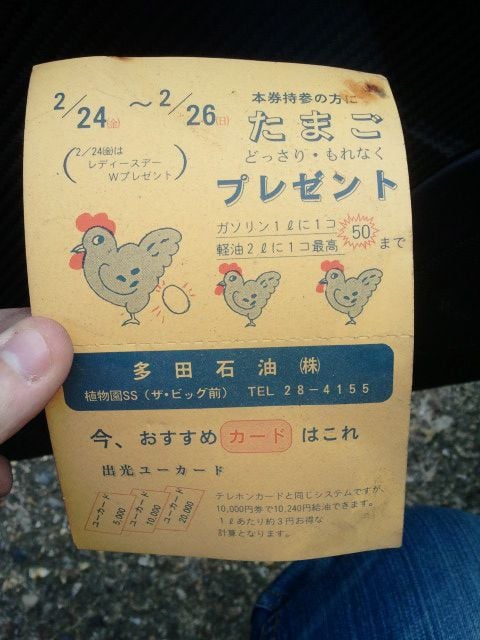 2/24㈮ ～2/26㈰
(2/24㈮は
レディースデー
Wプレゼント)
本券持参の方に
たまご
どっさり・もれなく
プレゼント
ガソリン1ℓに1コ
軽油2ℓに1コ最高 50 まで
多田石油㈱
植物園SS(ザ・ビッグ前) TEL 28-4155
今、おすすめ カード はこれ
出光ユーカード
ユーカード 5,000
ユーカード 10,000
ユーカード 20,000
テレホンカードと同じシステムですが、
10,000円券で10,240円給油できます。
1ℓあたり約3円お得な
計算となります。